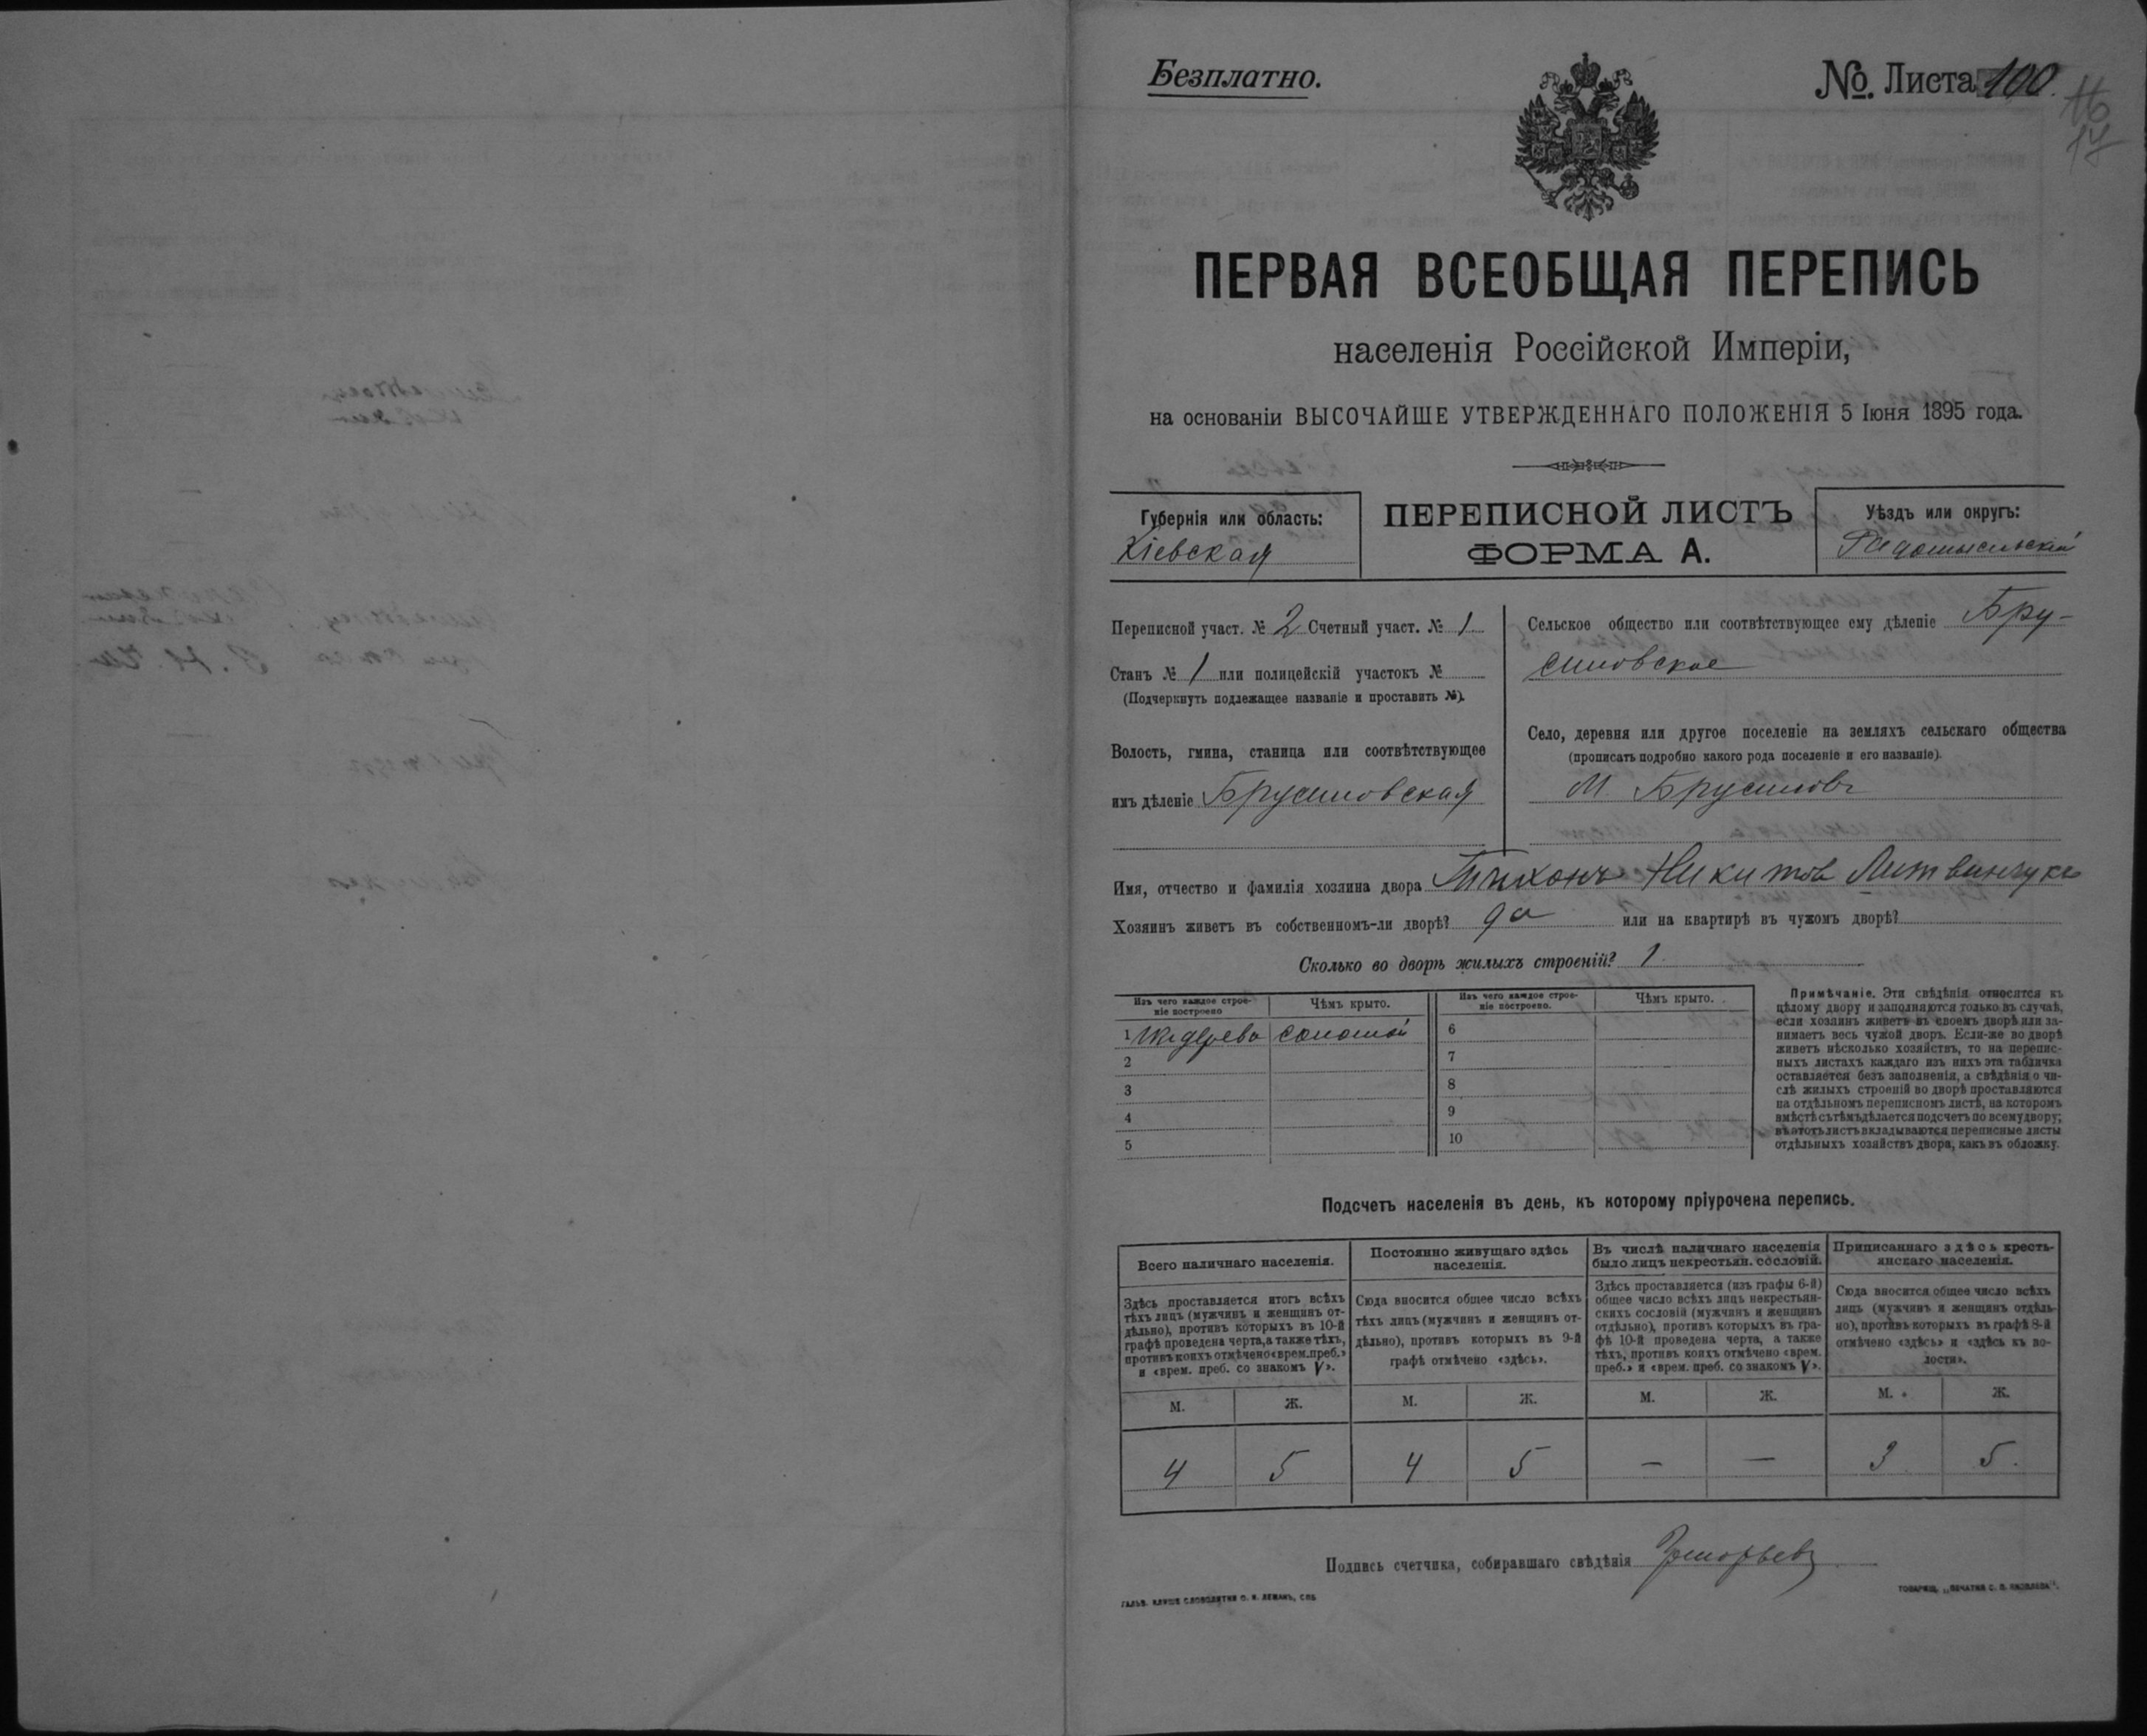 Безплатно.
№. Листа 100.
16
17
ПЕРВАЯ ВСЕОБЩАЯ ПЕРЕПИСЬ
населенія Россійской Имперіи,
на основаніи ВЫСОЧАЙШЕ УТВЕРЖДЕННАГО ПОЛОЖЕНІЯ 5 Іюня 1895 года.
Губернія или область:
Кіевская
ПЕРЕПИСНОЙ ЛИСТЪ
ФОРМА А.
Уѣздъ или округъ:
Радомысльскій
Переписной участ. № 2 Счетный участ. № 1
Станъ № 1 или полицейскій участокъ №
(Подчеркнуть подлежащее названіе и проставить №).
Волость, гмина, станица или соотвѣтствующее
имъ дѣленіе Брусиловская
Сельское общество или соотвѣтствующее ему дѣленіе Бру-
силовское
Село, деревня или другое поселеніе на земляхъ сельскаго общества
(прописать подробно какого рода поселеніе и его названіе).
М. Брусиловъ
Имя, отчество и фамилія хозяина двора Тихонъ Никитов Литвинчукъ
Хозяинъ живетъ въ собственномъ-ли дворѣ? да или на квартирѣ въ чужомъ дворѣ?
Сколько во дворѣ жилыхъ строеній? 1
Изъ чего каждое строе-
ніе построено
Чѣмъ крыто.
Изъ чего каждое строе-
ніе построено.
Чѣмъ крыто.
1 Изъ дерева соломой
2
3
4
5
6
7
8
9
10
Примѣчаніе. Эти свѣдѣнія относятся къ
цѣлому двору и заполняются только въ случаѣ,
если хозяинъ живетъ въ своемъ дворѣ или за-
нимаетъ весь чужой дворъ. Если-же во дворѣ
живетъ нѣсколько хозяйствъ, то на перепис-
ныхъ листахъ каждаго изъ нихъ эта табличка
оставляется безъ заполненія, а свѣдѣнія о чи-
слѣ жилыхъ строеній во дворѣ проставляются
на отдѣльномъ переписномъ листѣ, на которомъ
вмѣстѣ съ тѣмъ дѣлается подсчетъ по всему двору;
въ этотъ листъ вкладываются переписные листы
отдѣльныхъ хозяйствъ двора, какъ въ обложку.
Подсчетъ населенія въ день, къ которому пріурочена перепись.
Всего наличнаго населенія.
Здѣсь проставляется итогъ всѣхъ
тѣхъ лицъ (мужчинъ и женщинъ от-
дѣльно), противъ которыхъ въ 10-й
графѣ проведена черта, а также тѣхъ,
противъ коихъ отмѣчено «врем. преб.»
и «врем. преб. со знакомъ V».
Постоянно живущаго здѣсь
населенія.
Сюда вносится общее число всѣхъ
тѣхъ лицъ (мужчинъ и женщинъ от-
дѣльно), противъ которыхъ въ 9-й
графѣ отмѣчено «здѣсь».
Въ числѣ наличнаго населенія
было лицъ некрестьян. сословій.
Здѣсь проставляется (изъ графы 6-й)
общее число всѣхъ лицъ некрестьян-
скихъ сословій (мужчинъ и женщинъ
отдѣльно), противъ которыхъ въ гра-
фѣ 10-й проведена черта, а также
тѣхъ, противъ коихъ отмѣчено «врем.
преб.» и «врем. преб. со знакомъ V».
Приписаннаго здѣсь кресть-
янскаго населенія.
Сюда вносится общее число всѣхъ
лицъ (мужчинъ и женщинъ отдѣль-
но), противъ которыхъ въ графѣ 8-й
отмѣчено «здѣсь» и «здѣсь къ во-
лости».
М. Ж. М. Ж. М. Ж. М. Ж.
4 5 4 5 — — 3 5.
Подпись счетчика, собиравшаго свѣдѣнія
ГАЛЬВ. КЛИШЕ СЛОВОЛИТНИ О. И. ЛЕМАНЪ, СПБ.
ТОВАРИЩ. „ПЕЧАТНЯ С. П. ЯКОВЛЕВА".